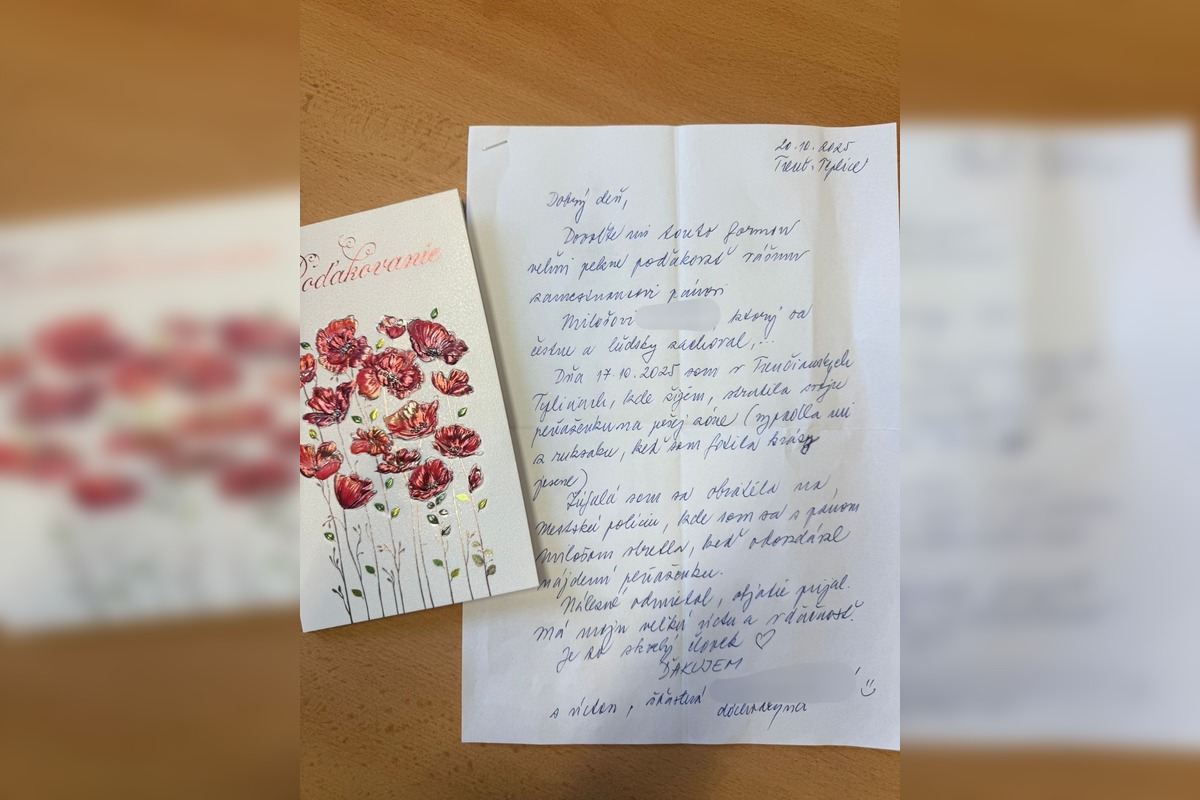 Poďakovanie
20.10.2025
Trenč. Teplice
Dobrý deň,
Dovoľte mi touto formou
veľmi pekne poďakovať Vášmu
zamestnancovi pánovi
Milošovi , ktorý sa
čestne a ľúdsky zachoval,...
Dňa 17.10.2025 som v Trenčianskych
Tepliciach, kde žijem, stratila svoju
peňaženku na pešej zóne (vypadla mi
z ruksaku, keď som fotila krásy
jesene)
Zúfalá som sa obrátila na
Mestskú políciu, kde som sa s pánom
Milošom stretla, keď odovzdával
nájdenú peňaženku.
Nálezné odmietol, objatie prijal.
Má moju veľkú úctu a vďačnosť.
Je to skvelý človek ♡
ĎAKUJEM
s úctou, šťastná
dôchodkyňa